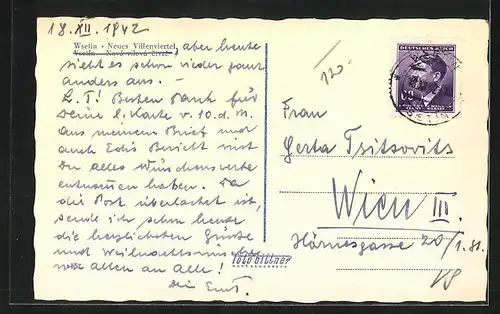 18. XII. 1942
Wsetin • Neues Villenviertel, aber heute
Vsetín - Nová vilová čtvrť
sieht es schon wieder ganz
anders aus. –
L. T! Besten Dank für
Deine l. Karte v. 10. d. M.
Aus meinem Brief und
auch Edis Bericht wirst
Du alles Wünschenswerte
entnommen haben. Da
die Post überlastet ist,
sende ich schon heute
die herzlichsten Grüsse
und Weihnachtswünsche
von allen an Alle!
Dein Ernst.
foto bittner
120.-
DEUTSCHES REICH
60
Frau
Gerta Tsitsovits
Wien III.
Hörnesgasse 20/1.81.